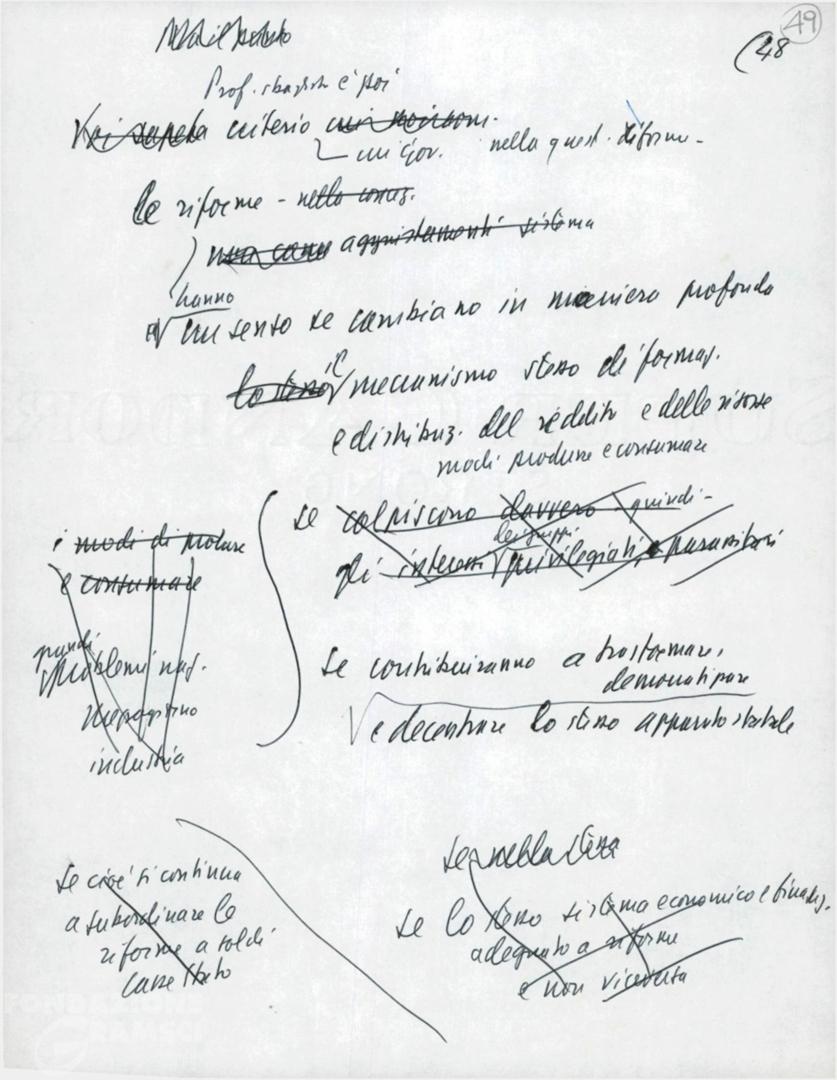 49
(48
Prof. sbagliato è poi
Voi sapete criterio
cui Gov. nella quest. riforme -
le riforme - nella
aggiustamenti sistema
hanno
un senso se cambiano in maniera profonda
lo stesso il meccanismo stesso di formaz.
e distribuz. del reddito e delle risorse
modi produrre e consumare
se colpiscono davvero - quindi -
dei gruppi
gli interessi privilegiati e parassitari
i modi di produrre
e consumare
grandi
problemi naz.
Mezzogiorno
industria
se contribuiranno a trasformare,
democratizzare
e decentrare lo stesso apparato statale
se cioè si continua
a subordinare le
riforme a soldi
casse Stato
se
se lo stesso sistema economico e finanz.
adeguato a riforme
e non viceversa
FONDAZIONE
GRAMSCI